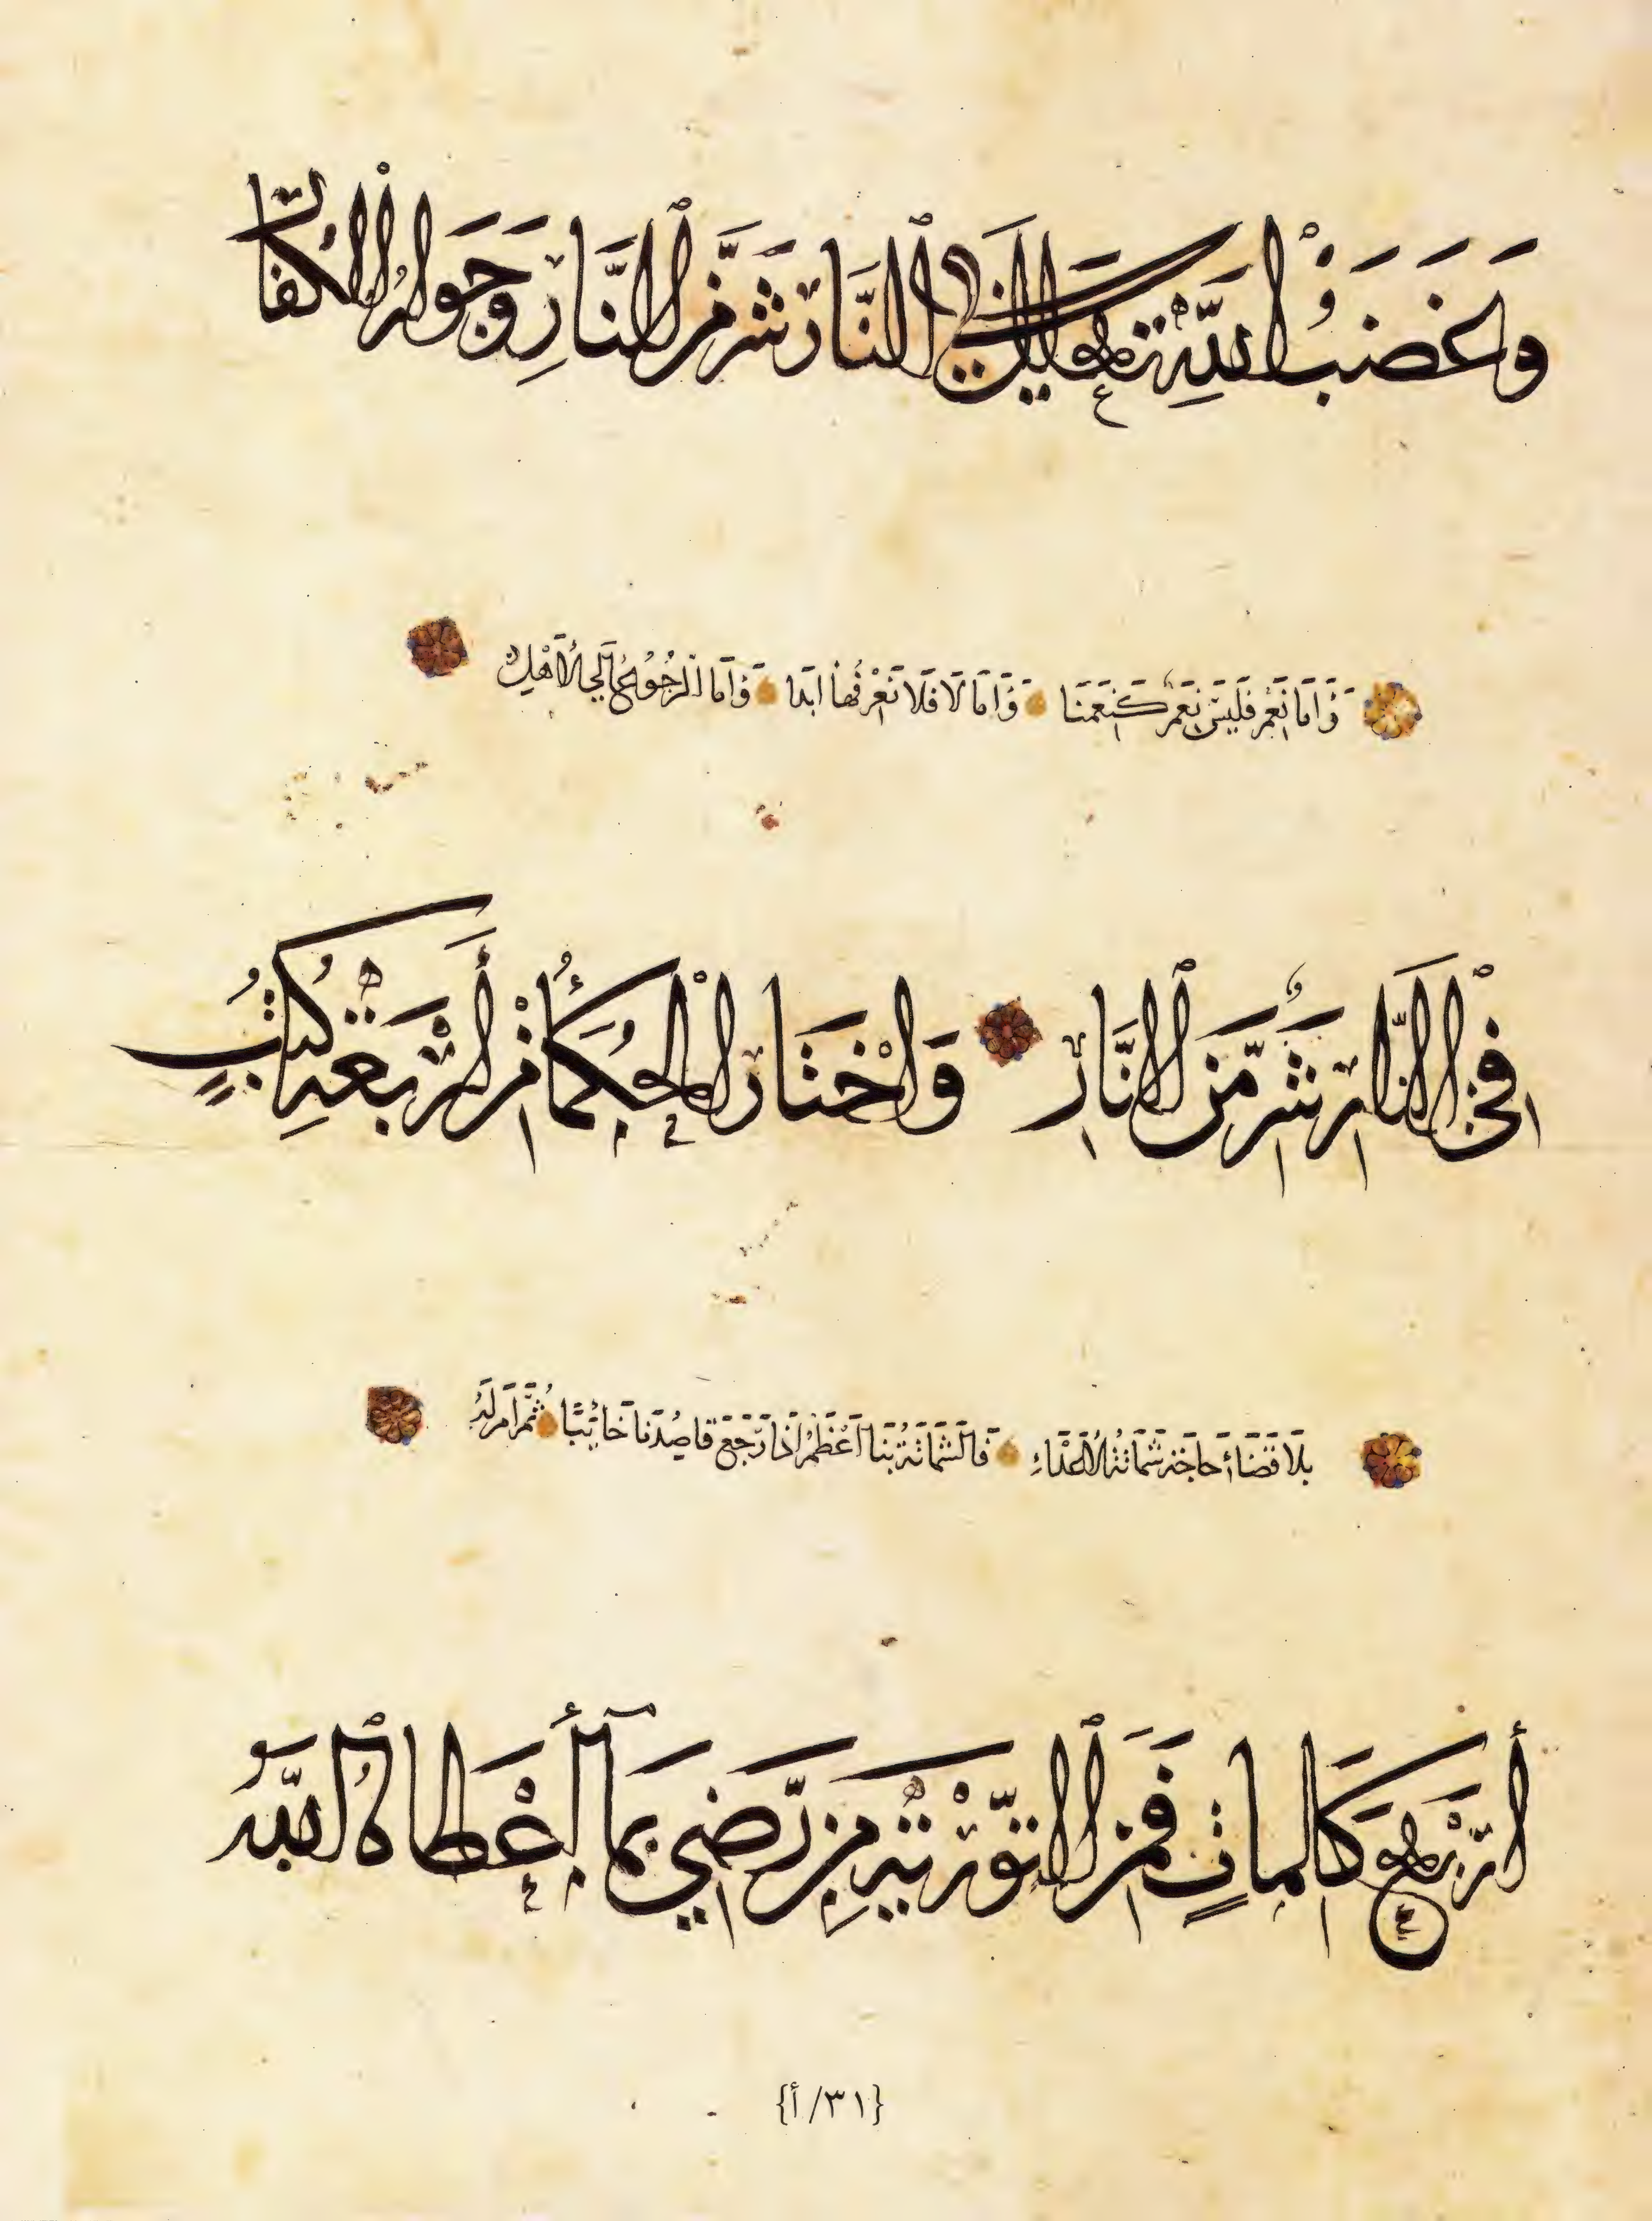 وَغَضَبُ اللَّهِ تعالى فِي النَّار شَرٌّ مِّنَ النَّارِ وَجَوَار الْكُفَّار
وَاَمَا نَعَمْ فَلَيْسَ نَعَمْ كَنَعَمْنَا وَاَمَا لَا فَلَا نَعْرفُهَا ابَدَا وَاَمَا الرُجُوُعُ الَي الْاَهْلِ
فِي النَّار شَرٌّ مِّنَ النَّار وَاخْتَار الْحُكَمَاءُ مِنْ أَرْبَعَةِ كُتُبٍ
بِلَا قَضَاءِ حَاجَة شَمَاتَةُ الْاَعْدَاءِ فَالشَّمَاتَةُ بنَا اَعْظَمُ اذَا رَجَعَ قَاصِدُنَا خَائِبًا ثُمَّ اَمَرَ لَهُ
أَرْبَع كَلِمَاتٍ فَمِنَ التَّوْرٰيةِ مَنْ رَّضِيَ بِمَا أَعْطَاهُ اللَّهُ
{٣١/أ}